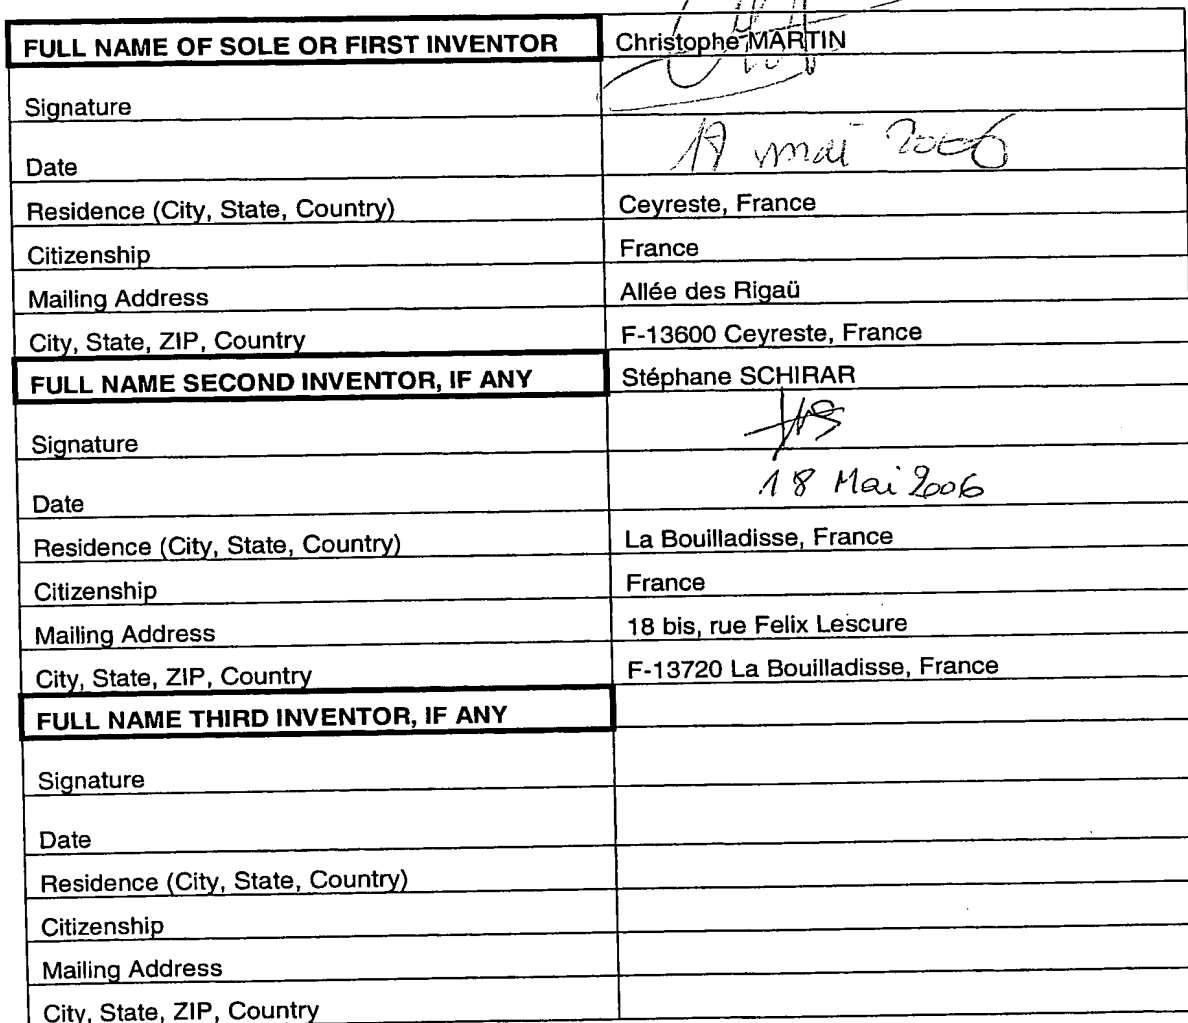 FULL NAME OF SOLE OR FIRST INVENTOR Christophe MARTIN
Signature
Date mai 2006
Residence (City, State, Country) Ceyreste, France
Citizenship France
Mailing Address Allée des Rigaü
City, State, ZIP, Country F-13600 Ceyreste, France
FULL NAME SECOND INVENTOR, IF ANY Stéphane SCHIRAR
Signature
Date 18 Mai 2006
Residence (City, State, Country) La Bouilladisse, France
Citizenship France
Mailing Address 18 bis, rue Felix Lescure
City, State, ZIP, Country F-13720 La Bouilladisse, France
FULL NAME THIRD INVENTOR, IF ANY
Signature
Date
Residence (City, State, Country)
Citizenship
Mailing Address
City, State, ZIP, Country